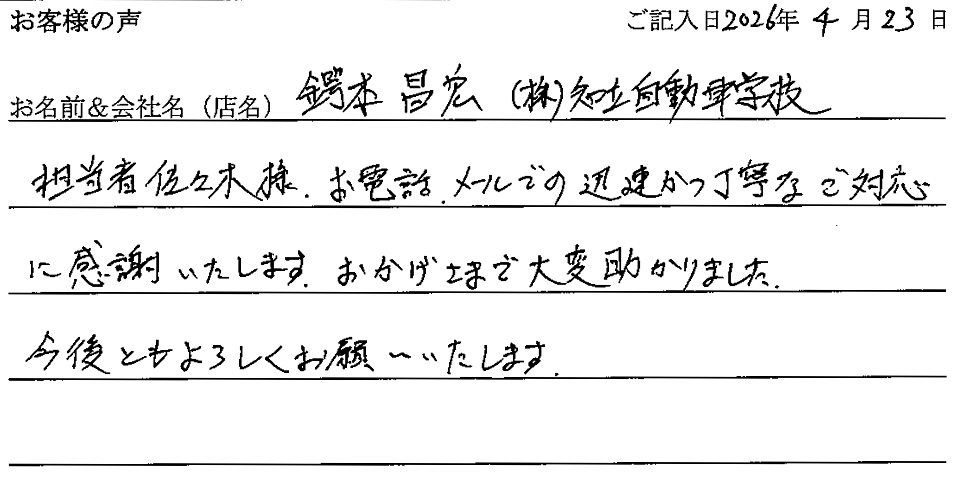 お客様の声 ご記入日2026年 4月23日
お名前&会社名（店名） 鍔本 昌宏 (株)知立自動車学校
担当者佐々木様、お電話、メールでの迅速かつ丁寧なご対応
に感謝いたします。おかげさまで大変助かりました。
今後ともよろしくお願いいたします。